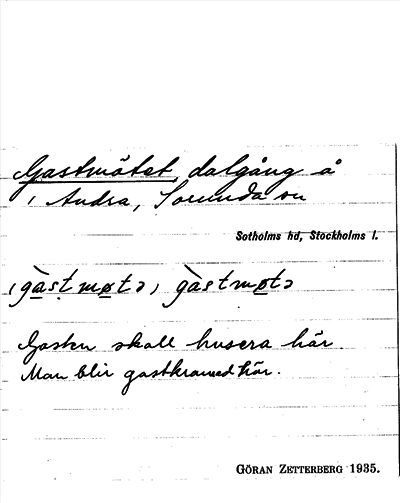 Gastmötet, dalgång å
/ Andra, Sorunda sn
Sotholms hd, Stockholms l.
(gàstmøtə, gàstmøtə
Gasten skall husera här
Man blir gastkramad här.
GÖRAN ZETTERBERG 1935.